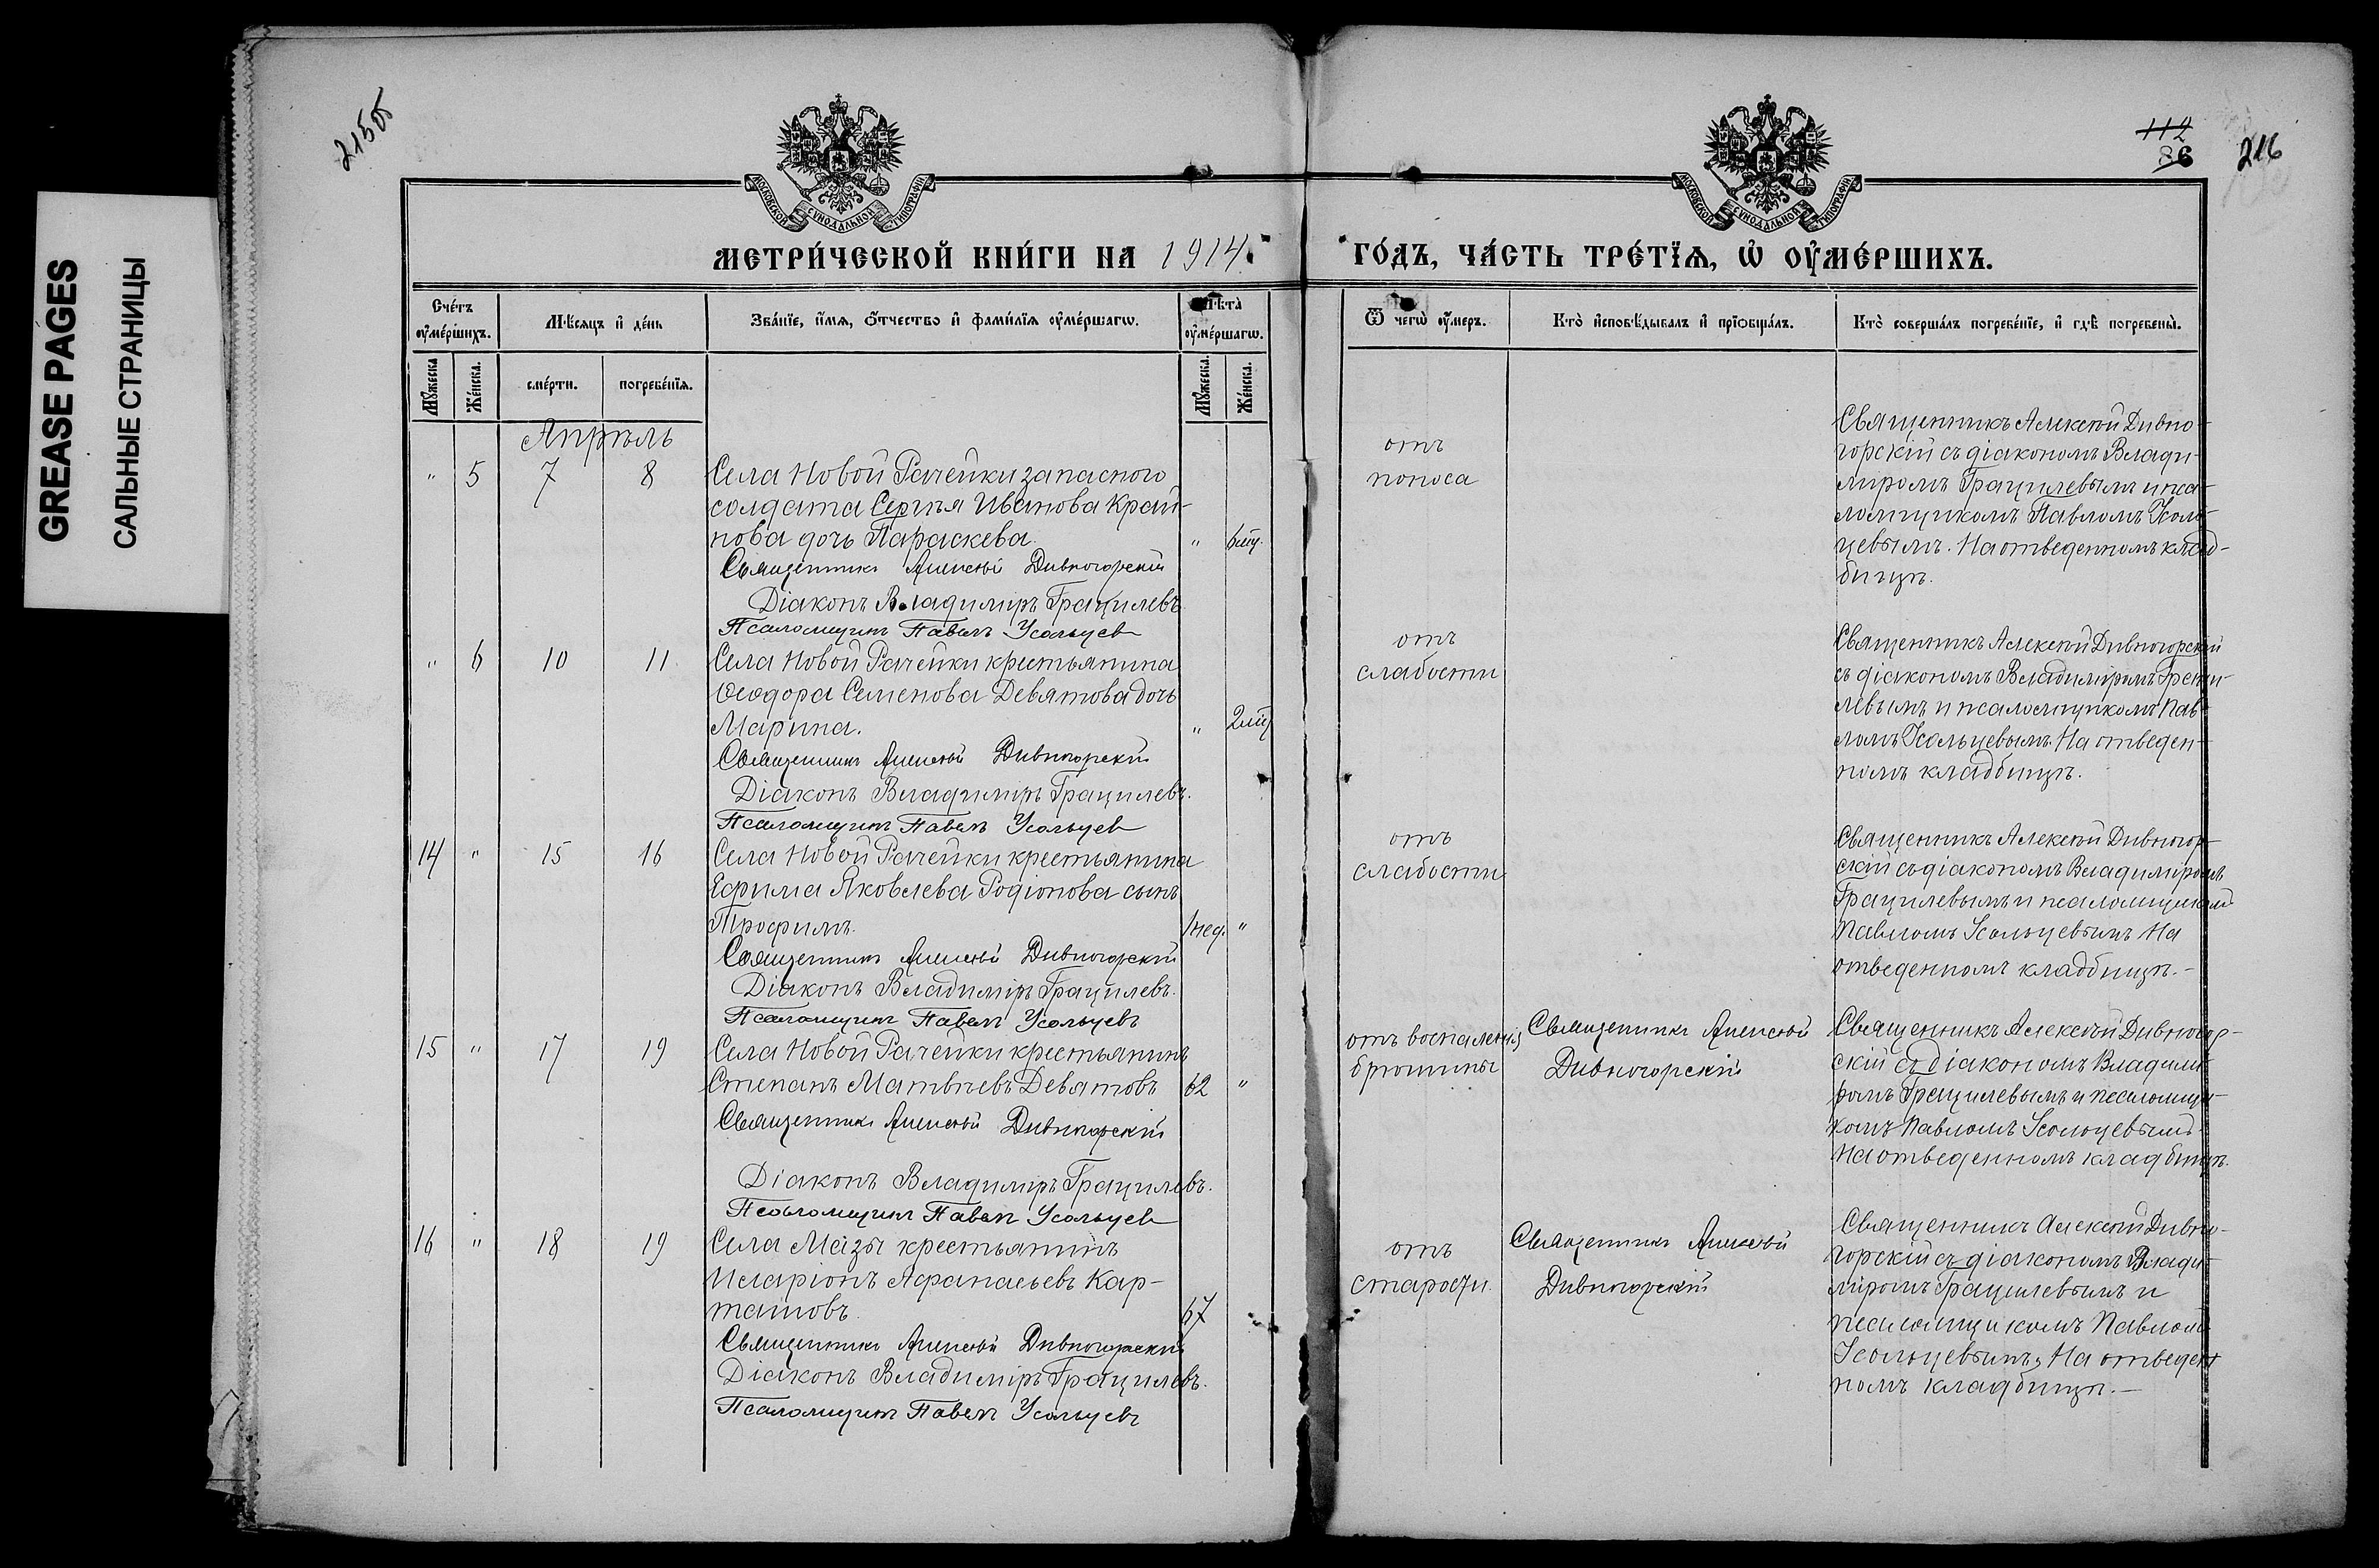 GREASE PAGES
САЛЬНЫЕ СТРАНИЦЫ
112
86
216
МОСКОВСКОЙ СѴНОДАЛЬНОЙ ТИПОГРАФІИ
МОСКОВСКОЙ СѴНОДАЛЬНОЙ ТИПОГРАФІИ
МЕТРИ́ЧЕСКОЙ КНИ́ГИ НА 1914
ГО́ДЪ, ЧА́СТЬ ТРЕ́ТЇѦ, Ѽ ОУ҆МЕ́РШИХЪ.
Сче́тъ оу҆ме́ршихъ.
Мѣ́сяцъ и҆ де́нь
Зва́нїе, и҆́мѧ, ѻ҆́тчество и҆ фами́лїѧ оу҆ме́ршагѡ.
Лѣ̑та̀ оу҆ме́ршагѡ.
Ѿ чегѡ̀ оу҆́меръ.
Кто̀ и҆сповѣ́дывалъ и҆ прїѡбща́лъ.
Кто̀ соверша́лъ погребе́нїе, и҆ гдѣ̀ погребены̀.
Мꙋ́жеска.
Же́нска.
сме́рти.
погребе́нїѧ.
Мꙋ́жеска.
Же́нска.
Апрѣль
" 5 7 8
Села Новой Рачейки запасного
солдата Сергѣя Иванова Край-
нова дочь Параскева. " 6 мц.
Священникъ Алексѣй Дивногорскій
Діаконъ Владимиръ Грацилевъ
Псаломщик Павел Усольцев
отъ
поноса
Священникъ Алексѣй Дивно-
горскій съ діакономъ Влади-
миромъ Грацилевымъ и пса-
ломщикомъ Павломъ Усоль-
цевымъ. На отведенномъ клад-
бищѣ.
" 6 10 11
Села Новой Рачейки крестьянина
Ѳеодора Семенова Девятова дочь
Марина. " 2 мц
Священникъ Алексѣй Дивногорскій
Діаконъ Владимиръ Грацилевъ.
Псаломщик Павел Усольцев
отъ
слабости
Священникъ Алексѣй Дивногорскій
съ діакономъ Владиміромъ Граци-
левымъ и псаломщикомъ Пав-
ломъ Усольцевымъ. На отведен-
номъ кладбищѣ.
14 " 15 16
Села Новой Рачейки крестьянина
Ефима Яковлева Родіонова сынъ
Трофимъ. 1 нед. "
Священникъ Алексѣй Дивногорскій
Діаконъ Владиміръ Грацилевъ.
Псаломщик Павел Усольцевъ
отъ
слабости
Священникъ Алексѣй Дивногор-
скій съ діакономъ Владиміромъ
Грацилевымъ и псаломщикомъ
Павломъ Усольцевымъ На
отведенномъ кладбищѣ.-
15 " 17 19
Села Новой Рачейки крестьянинъ
Степанъ Матвѣевъ Девятовъ 62 "
Священникъ Алексѣй Дивногорскій
Діаконъ Владимиръ Грацилевъ.
Псаломщик Павел Усольцев
отъ воспаленія
брюшины
Священникъ Алексѣй
Дивногорскій
Священникъ Алексѣй Дивногор-
скій съ діакономъ Владими-
ромъ Грацилевымъ и псаломщи-
комъ Павломъ Усольцевымъ
На отведенномъ кладбищѣ.
16 " 18 19
Села Мазы крестьянинъ
Иларіонъ Афанасьевъ Кар-
ташовъ. 67
Священникъ Алексѣй Дивногорскій
Діаконъ Владиміръ Грацилевъ.
Псаломщик Павел Усольцевъ
отъ
старости.
Священникъ Алексѣй
Дивногорскій
Священникъ Алексѣй Дивно-
горскій съ діакономъ Влади-
міромъ Грацилевымъ и
псаломщикомъ Павломъ
Усольцевымъ, На отведен-
номъ кладбищѣ.-